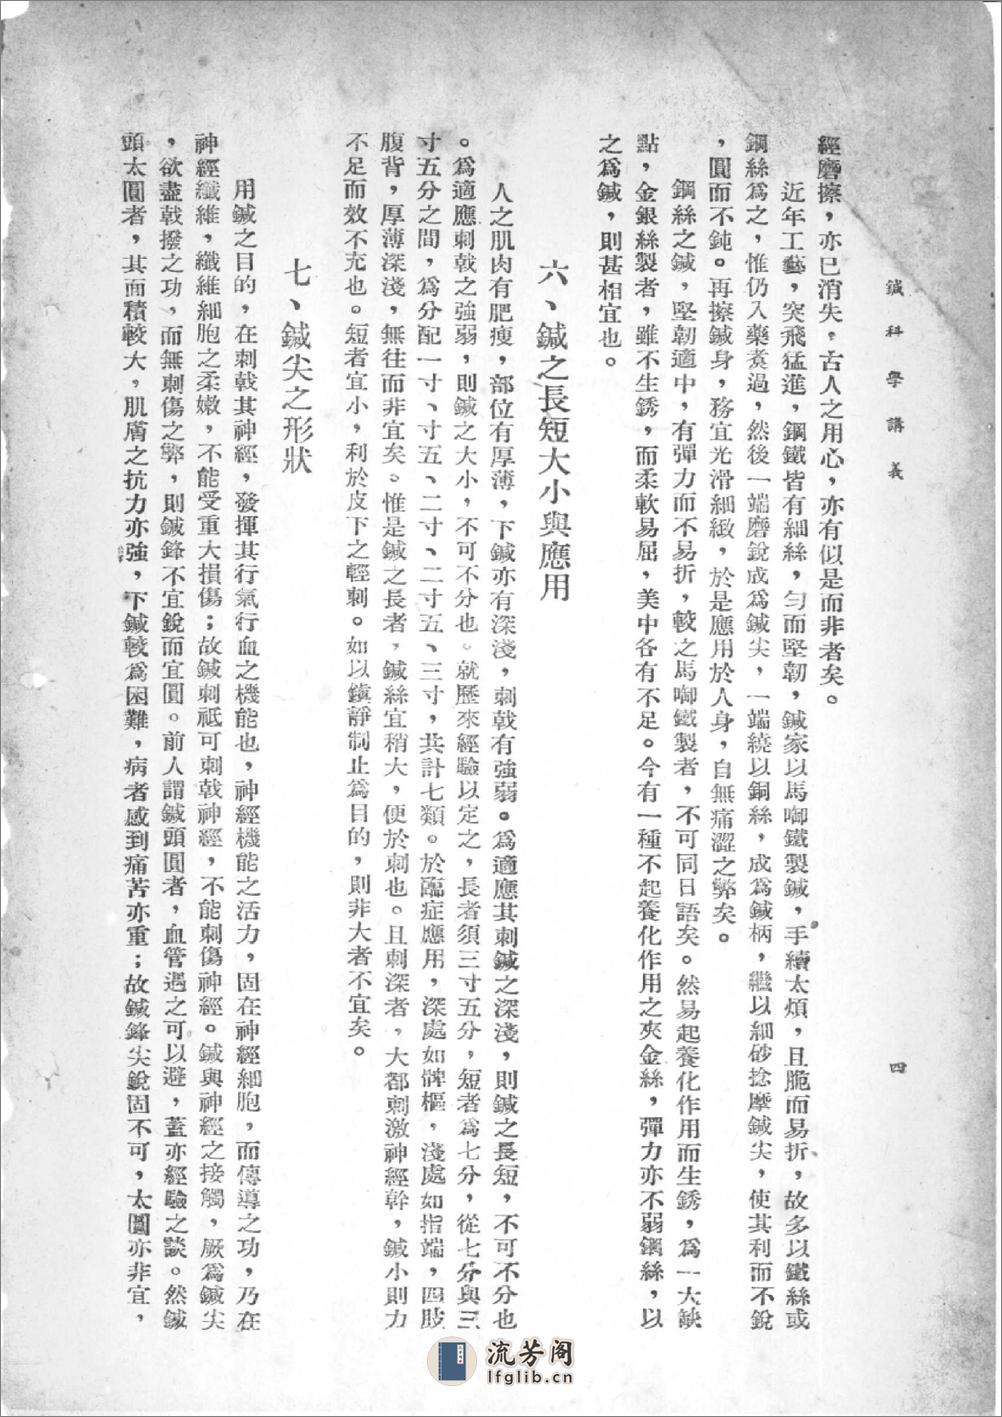 鍼科學講義
四
經磨擦，亦已消失，古人之用心，亦有似是而非者矣。
近年工藝，突飛猛進，鋼鐵皆有細絲，勻而堅韌，鍼家以馬啣鐵製鍼，手續太煩，且脆而易折，故多以鐵絲或
鋼絲爲之，惟仍入藥煑過，然後一端磨銳成爲鍼尖，一端繞以銅絲，成爲鍼柄，繼以細砂捻摩鍼尖，使其利而不銳
，圓而不鈍。再擦鍼身，務宜光滑細緻，於是應用於人身，自無痛澀之弊矣。
鋼絲之鍼，堅韌適中，有彈力而不易折，較之馬啣鐵製者，不可同日語矣。然易起養化作用而生銹，爲一大缺
點，金銀絲製者，雖不生銹，而柔軟易屈，美中各有不足。今有一種不起養化作用之夾金絲，彈力亦不弱鋼絲，以
之爲鍼，則甚相宜也。
六、鍼之長短大小與應用
人之肌肉有肥瘦，部位有厚薄，下鍼亦有深淺，刺戟有強弱。爲適應其刺鍼之深淺，則鍼之長短，不可不分也
。爲適應刺戟之強弱，則鍼之大小，不可不分也。就歷來經驗以定之，長者須三寸五分，短者爲七分，從七分與三
寸五分之間，爲分配一寸、寸五、二寸、二寸五、三寸，共計七類。於臨症應用，深處如髀樞，淺處如指端，四肢
腹背，厚薄深淺，無往而非宜矣。惟是鍼之長者，鍼絲宜稍大，便於刺也。且刺深者，大都刺激神經幹，鍼小則力
不足而效不充也。短者宜小，利於皮下之輕刺。如以鎮靜制止爲目的，則非大者不宜矣。
七、鍼尖之形狀
用鍼之目的，在刺戟其神經，發揮其行氣行血之機能也，神經機能之活力，固在神經細胞，而傳導之功，乃在
神經纖維，纖維細胞之柔嫩，不能受重大損傷；故鍼刺祗可刺戟神經，不能刺傷神經。鍼與神經之接觸，厥爲鍼尖
，欲盡戟撥之功，而無刺傷之弊，則鍼鋒不宜銳而宜圓。前人謂鍼頭圓者，血管遇之可以避，蓋亦經驗之談。然鍼
頭太圓者，其面積較大，肌膚之抗力亦強，下鍼較爲困難，病者感到痛苦亦重；故鍼鋒尖銳固不可，太圓亦非宜，
流芳阁
lfglib.cn